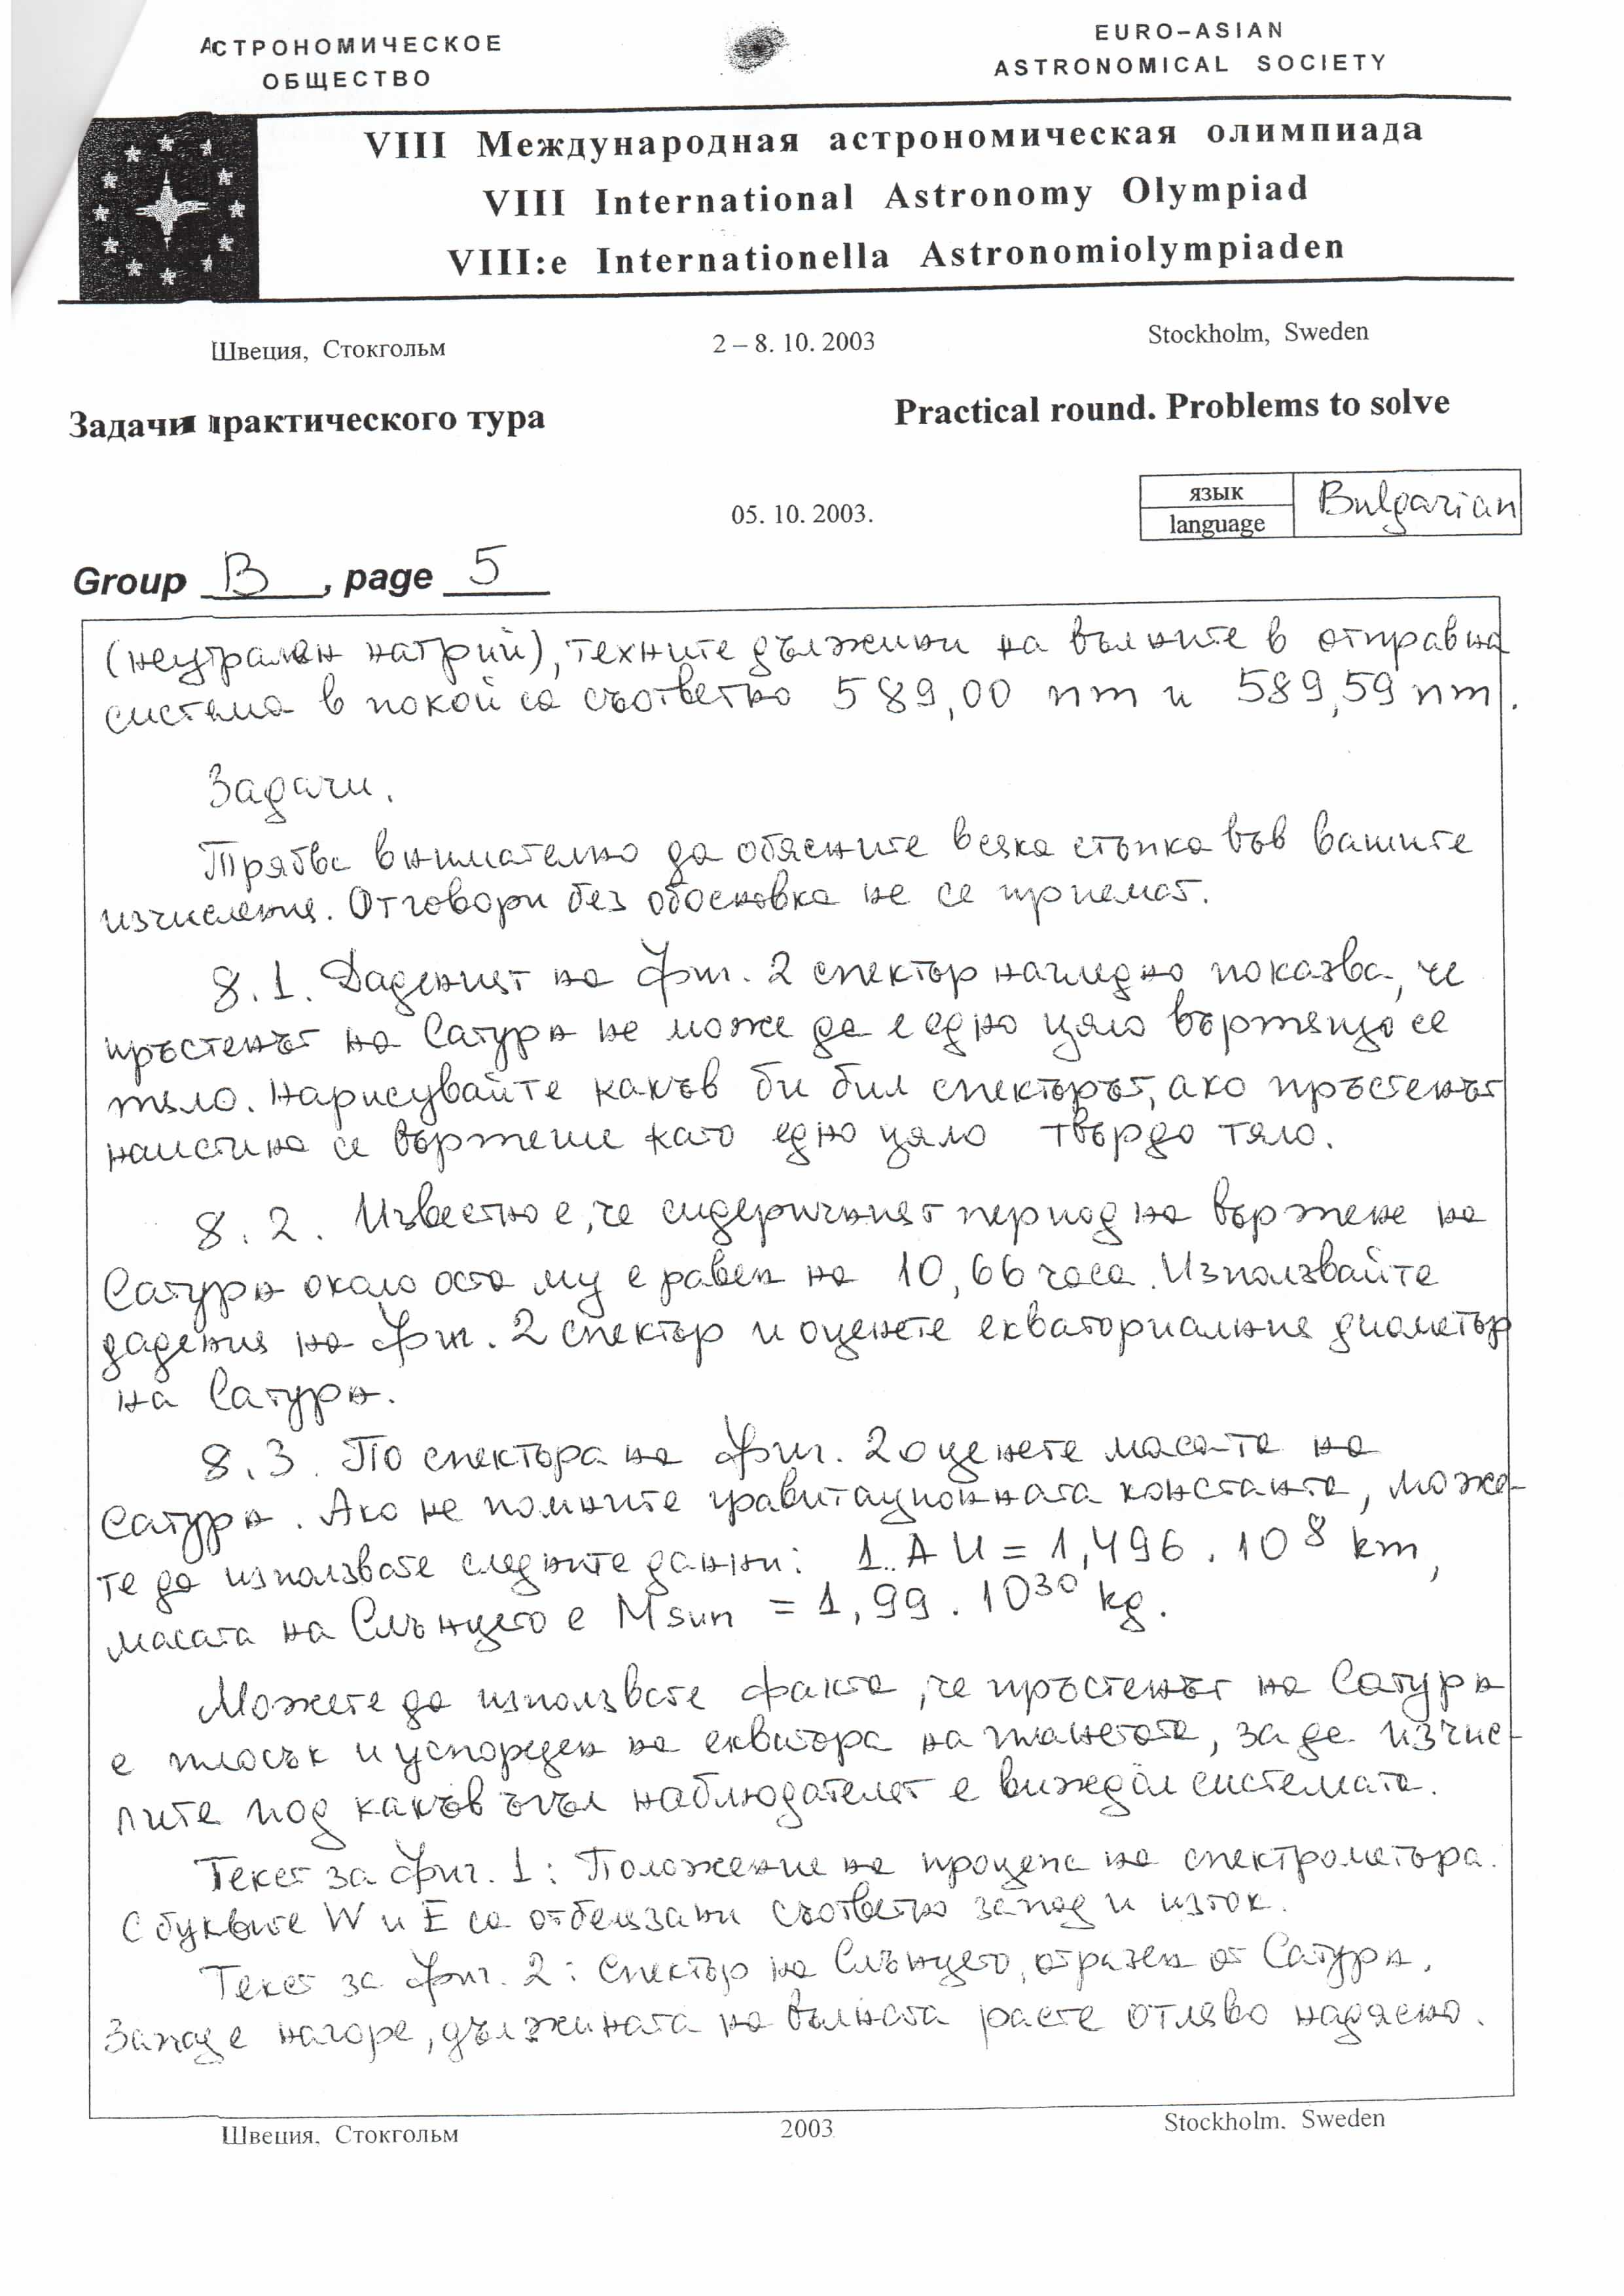 АСТРОНОМИЧЕСКОЕ
ОБЩЕСТВО
EURO–ASIAN
ASTRONOMICAL SOCIETY
VIII Международная астрономическая олимпиада
VIII International Astronomy Olympiad
VIII:e Internationella Astronomiolympiaden
Швеция, Стокгольм
2 – 8. 10. 2003
Stockholm, Sweden
Задачи практического тура
Practical round. Problems to solve
05. 10. 2003.
язык
language
Bulgarian
Group B, page 5
(неутрален натрий), техните дължини на вълните в отправна
система в покой са съответно 589,00 nm и 589,59 nm.
Задачи.
Трябва внимателно да обясните всяка стъпка във вашите
изчисления. Отговори без обосновка не се приемат.
8.1. Даденият на фиг. 2 спектър нагледно показва, че
пръстенът на Сатурн не може да е едно цяло въртящо се
тяло. Нарисувайте какъв би бил спектърът, ако пръстенът
наистина се въртеше като едно цяло твърдо тяло.
8.2. Известно е, че сидеричният период на въртене на
Сатурн около оста му е равен на 10,66 часа. Използвайте
дадения на фиг. 2 спектър и оценете екваториалния диаметър
на Сатурн.
8.3. По спектъра на фиг. 2 оценете масата на
Сатурн. Ако не помните гравитационната константа, може-
те да използвате следните данни: 1 AU = 1,496 . 10⁸ km,
масата на Слънцето е Msun = 1,99 . 10³⁰ kg.
Можете да използвате факта, че пръстенът на Сатурн
е плосък и успореден на екватора на планетата, за да изчис-
лите под какъв ъгъл наблюдателят е виждал системата.
Текст за фиг. 1: Положение на процепа на спектрометъра.
С буквите W и E са отбелязани съответно запад и изток.
Текст за фиг. 2: Спектър на Слънцето, отразен от Сатурн.
Запад е нагоре, дължината на вълната расте отляво надясно.
Швеция, Стокгольм
2003
Stockholm. Sweden